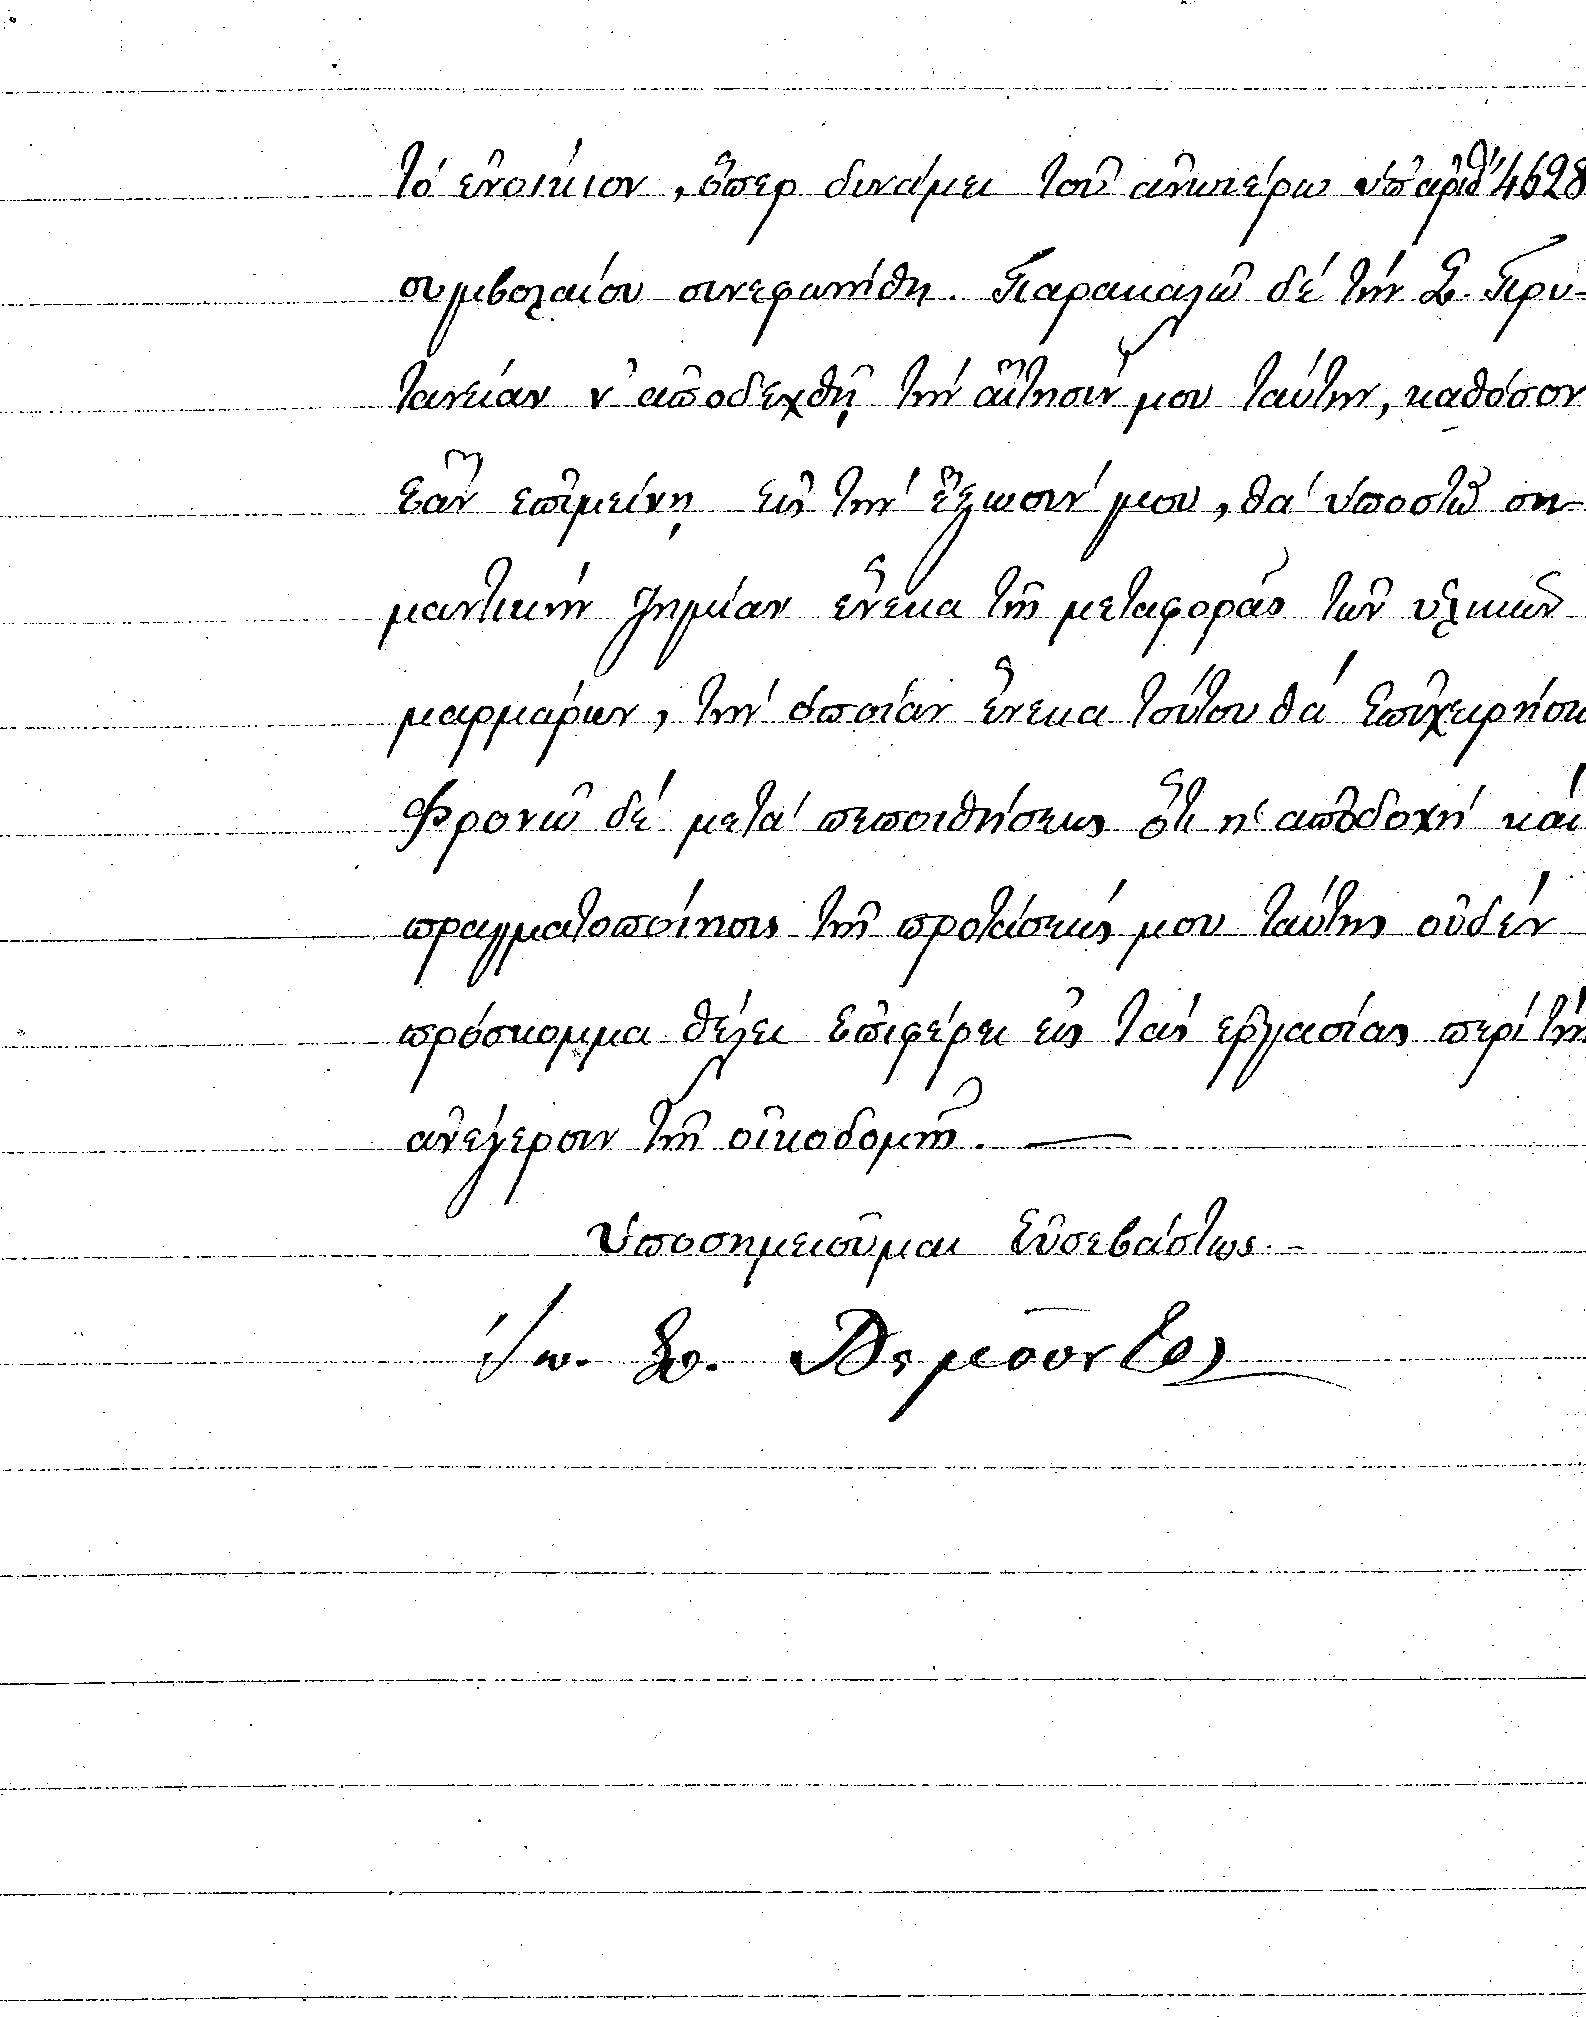 τό ἐνοίκιον, ὅπερ δυνάμει τοῦ ἀνωτέρω ὑπ' ἀριθ. 4628
συμβολαίου συνεφωνήθη. Παρακαλῶ δέ τήν Σ. Πρυ-
τανείαν ν' ἀποδεχθῇ τήν αἴτησίν μου ταύτην, καθόσον
ἐάν ἐπιμείνῃ εἰς τήν ἔξωσίν μου, θά ὑποστῶ ση-
μαντικήν ζημίαν ἕνεκα τῆς μεταφορᾶς τῶν ὑλικῶν
μαρμάρων, τήν ὁποίαν ἕνεκα τούτου θά ἐπιχειρήσω
Φρονῶ δέ μετά πεποιθήσεως ὅτι ἡ ἀποδοχή καί
πραγματοποίησις τῆς προτάσεώς μου ταύτης οὐδέν
πρόσκομμα θέλει ἐπιφέρει εἰς τάς ἐργασίας περί τήν
ἀνέγερσιν τῆς οἰκοδομῆς. —
Ὑποσημειοῦμαι εὐσεβάστως
Ἰω.